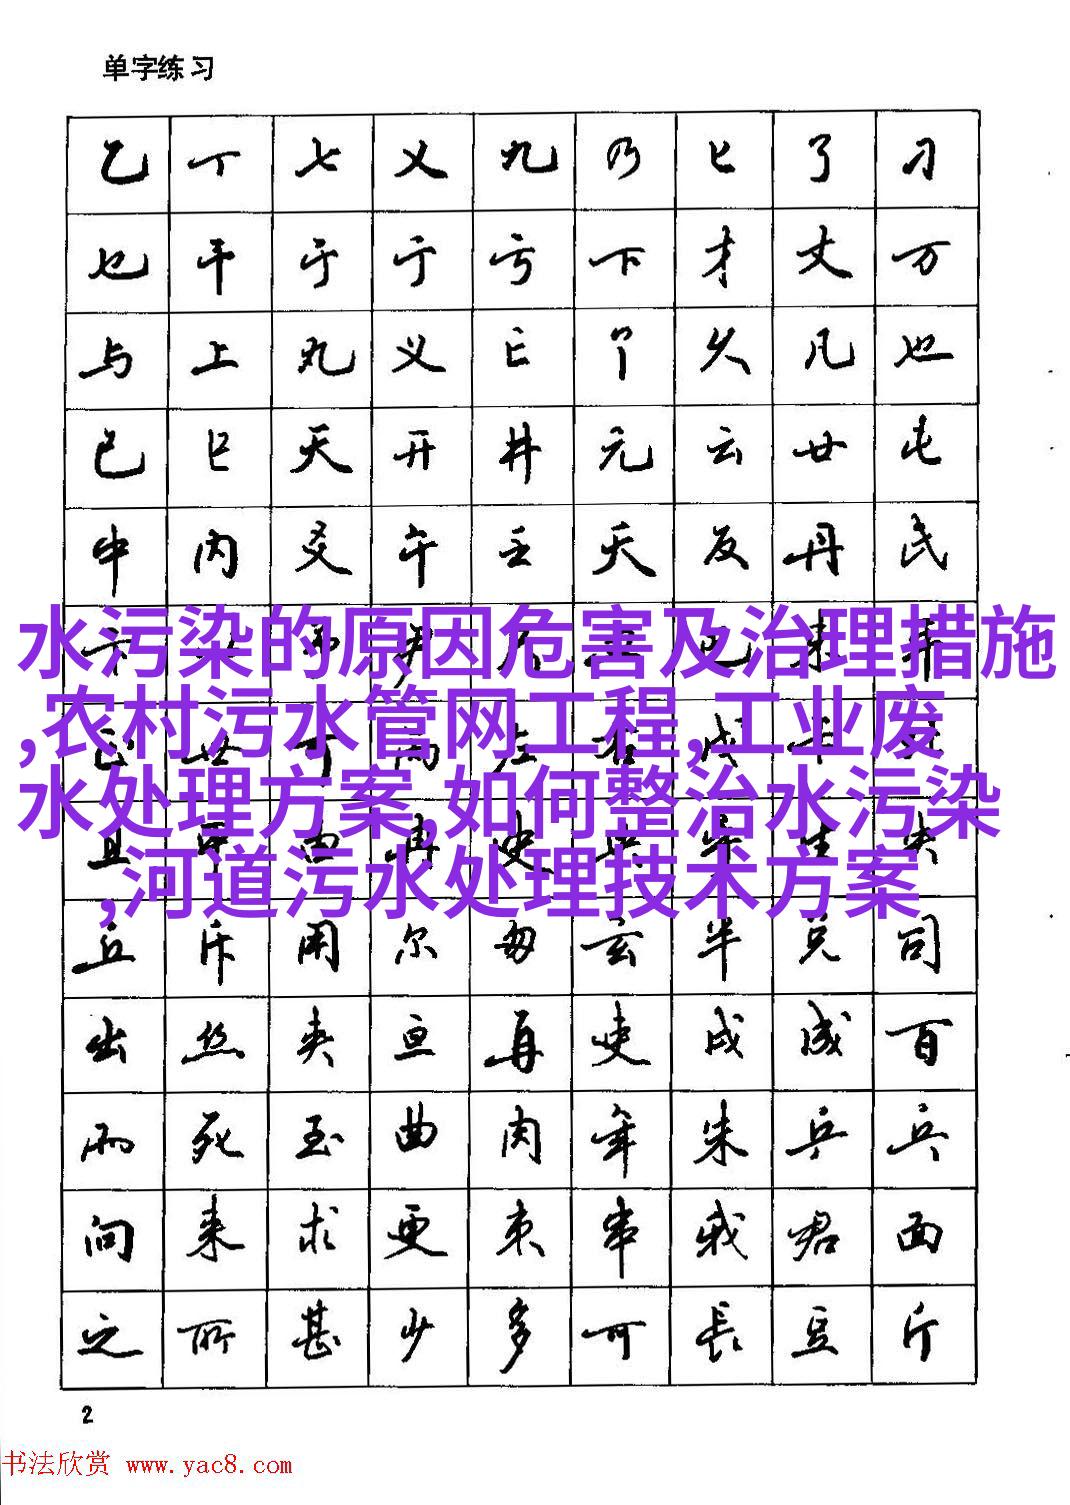 单字练习
乙 丁 七 乂 九 乃 匕 了 刁
也 干 于 于 亏 下 才 丈 万
与 上 丸 义 亡 久 凡 也
已 巳 天 开 井 元 云 廿 屯
中 内 爻 午 壬 夭 反 丹 民
水污染的原因危害及治理措施
,农村污水管网工程,工业废
水处理方案,如何整治水污染
,河道污水处理技术方案
丘 斥 用 尔 匆 玄 半 兑 司
出 丝 夹 亘 再 吏 戌 成 百
而 死 至 曲 肉 年 朱 乒 兵
向 来 求 更 束 串 我 君 面
之 所 甚 少 多 可 長 豆 斤
2
书法欣赏 www.yac8.com